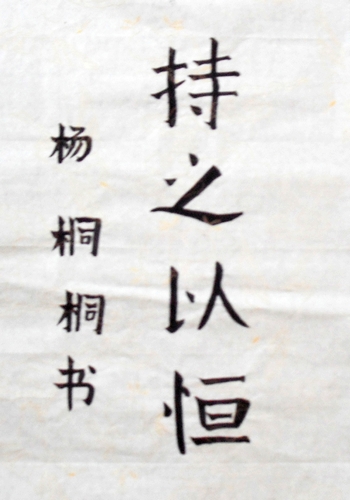 持之以恒
杨桐桐书